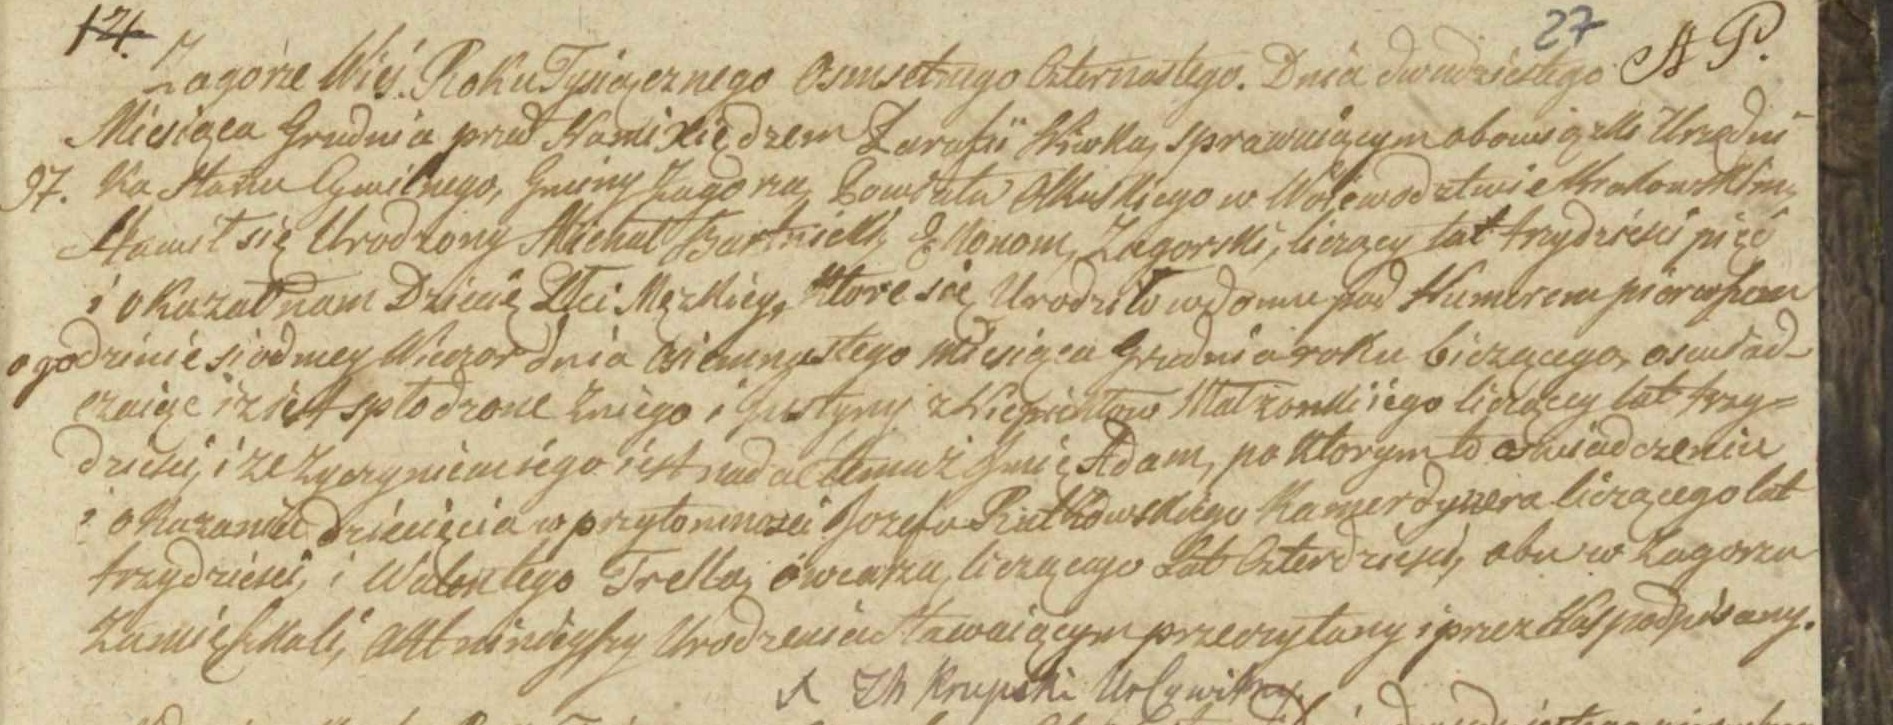 14.
27
A P.
Zagorze Wieś. Roku Tysiącznego Osmsetnego Czternastego. Dnia dwudziestego
Miesiąca Grudnia przed Nami Xiędzem Parafii Niwka, sprawuiącym obowiązki Urzędni
97. ka Stanu Cywilnego, Gminy Zagorza, Powiatu Olkuskiego w Wolewodztwie Krakowskim,
Stawił się Urodzony Michał Bartnicki, Ekonom, Zagorski, liczący lat trzydzieści pięć
i okazał nam Dziecię Płci Męzkiey, Ktore się Urodziło w domu pod Numerem pierwszem
o godzinie siodmey Wieczor dnia Osiemnastego Miesiąca Grudnia roku bieżącego, oswiad-
czaiąc iż iest spłodzone z niego i Justyny z Małżonki iego liczącey lat trzy=
dzieści, i że życzeniem iego iest nadać temuż Jmię Adam, po Ktorym to oświadczeniu
i okazaniu dziecięcia w przytomności Jozefa Rutkowskiego Kamerdynera liczącego lat
trzydzieści, i Walentego Trella, owczarza, liczącego Lat Czterdzieści, obu w Zagorzu
Zamięszkali, Akt ninieyszy Urodzenia stawaiącym przeczytany i przez Nas podpisany.
X Krupski Ur Cywilny